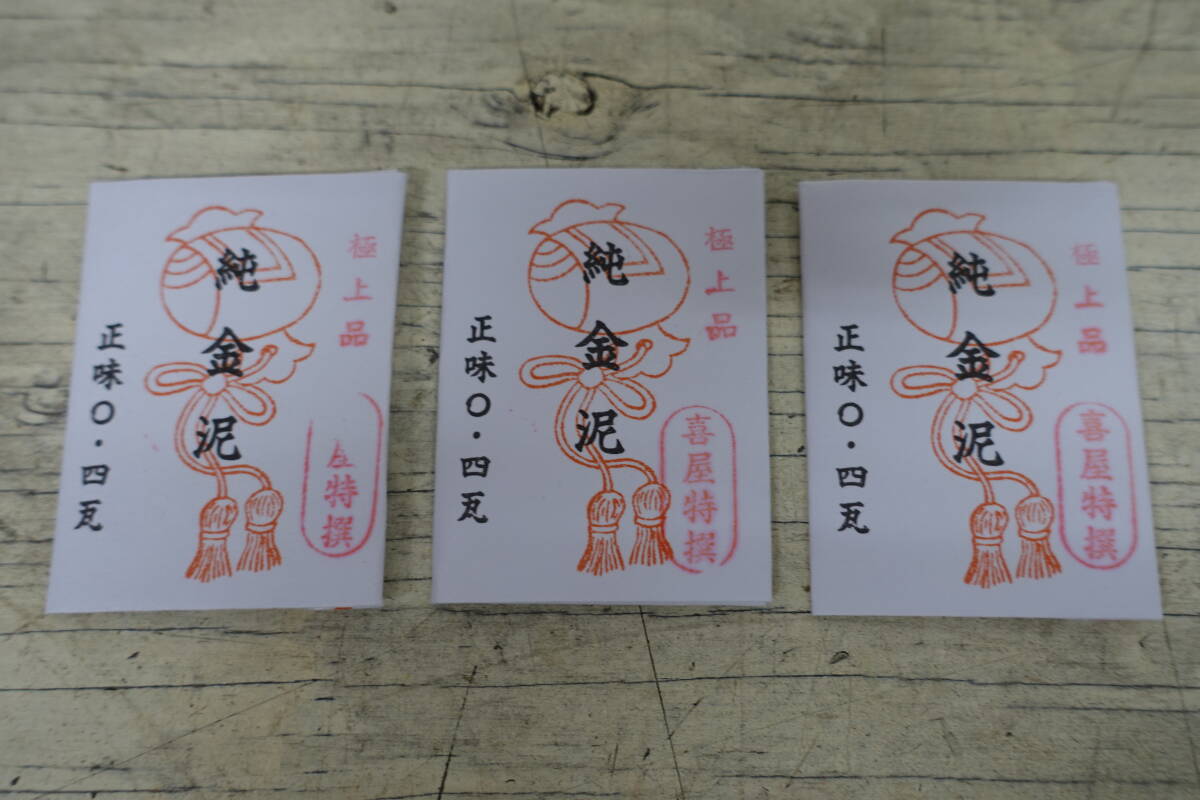 極上品
純金泥
正味〇・四瓦
特撰
極上品
純金泥
正味〇・四瓦
喜屋特撰
極上品
純金泥
正味〇・四瓦
喜屋特撰